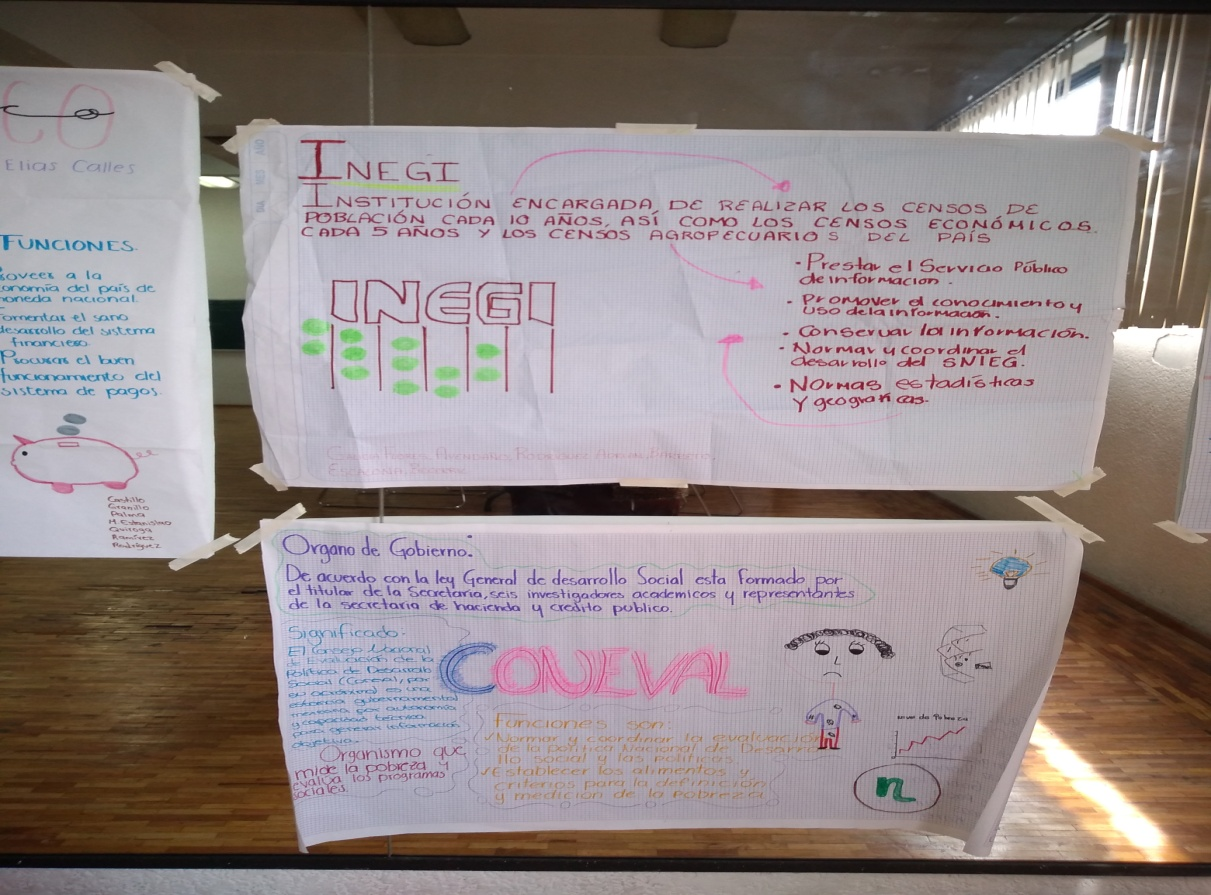 CO
Elias Calles
FUNCIONES.
Proveer a la
economía del país de
moneda nacional.
Fomentar el sano
desarrollo del sistema
financiero.
Procurar el buen
funcionamiento del
sistema de pagos.
Castillo
Granillo
Palma
M. Estanislao
Quiroga
Ramírez
Rodríguez
DIA MES AÑO
INEGI
INSTITUCIÓN ENCARGADA DE REALIZAR LOS CENSOS DE
POBLACIÓN CADA 10 AÑOS, ASÍ COMO LOS CENSOS ECONÓMICOS
CADA 5 AÑOS Y LOS CENSOS AGROPECUARIOS DEL PAÍS
INEGI
• Prestar el Servicio Público
de informacion.
• Promover el conocimiento y
uso de la informacion.
• Conservar la informacion.
• Normar y coordinar el
desarrollo del SNIEG.
• Normas estadísticas
y geograficas.
Organo de Gobierno:
De acuerdo con la ley General de desarrollo Social esta formado por
el titular de la Secretaria, seis investigadores academicos y representantes
de la secretaria de hacienda y credito publico.
Significado.
El Consejo Nacional
de Evaluación de la
Política de Desarrollo
Social (Coneval, por
su acrónimo) es una
gubernamental
mexicana por autonomía
y capacidad técnica
para generar información
objetiva.
Organismo que
mide la pobreza y
evalúa los programas
sociales.
CONEVAL
Funciones son:
✓Normar y coordinar la evaluación
de la politica Nacional de Desarro
llo social y las politicas
✓Establecer los alimentos y
criterios para la definición
y medición de la Pobreza
n